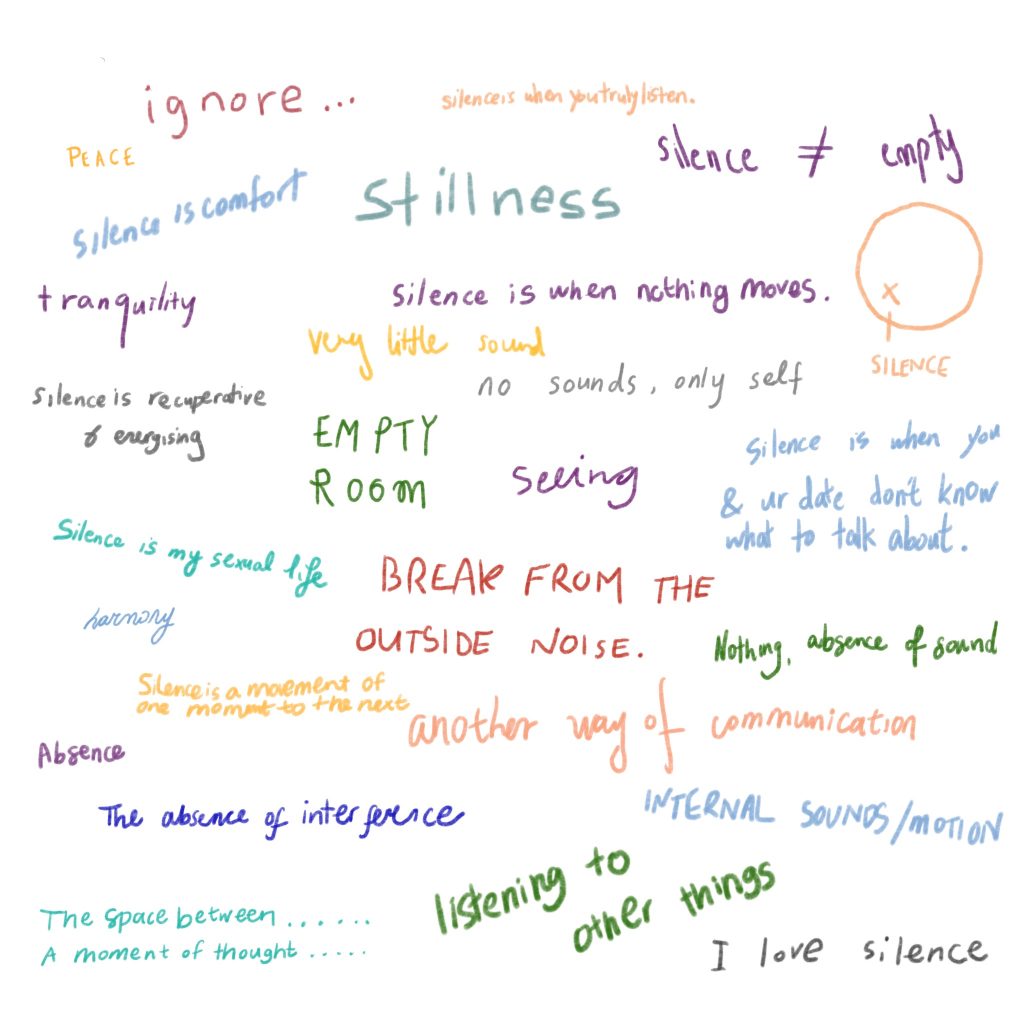 ignore...
silence is when you truly listen.
PEACE
silence ≠ empty
silence is comfort
stillness
tranquility
silence is when nothing moves.
x
SILENCE
very little sound
no sounds, only self
silence is recuperative
& energising
EMPTY
ROOM
seeing
silence is when you
& ur date don't know
what to talk about.
Silence is my sexual life
BREAK FROM THE
OUTSIDE NOISE.
harmony
Nothing, absence of sound
Silence is a movement of
one moment to the next
another way of communication
Absence
The absence of interference
INTERNAL SOUNDS/MOTION
listening to
other things
The space between......
A moment of thought.....
I love silence